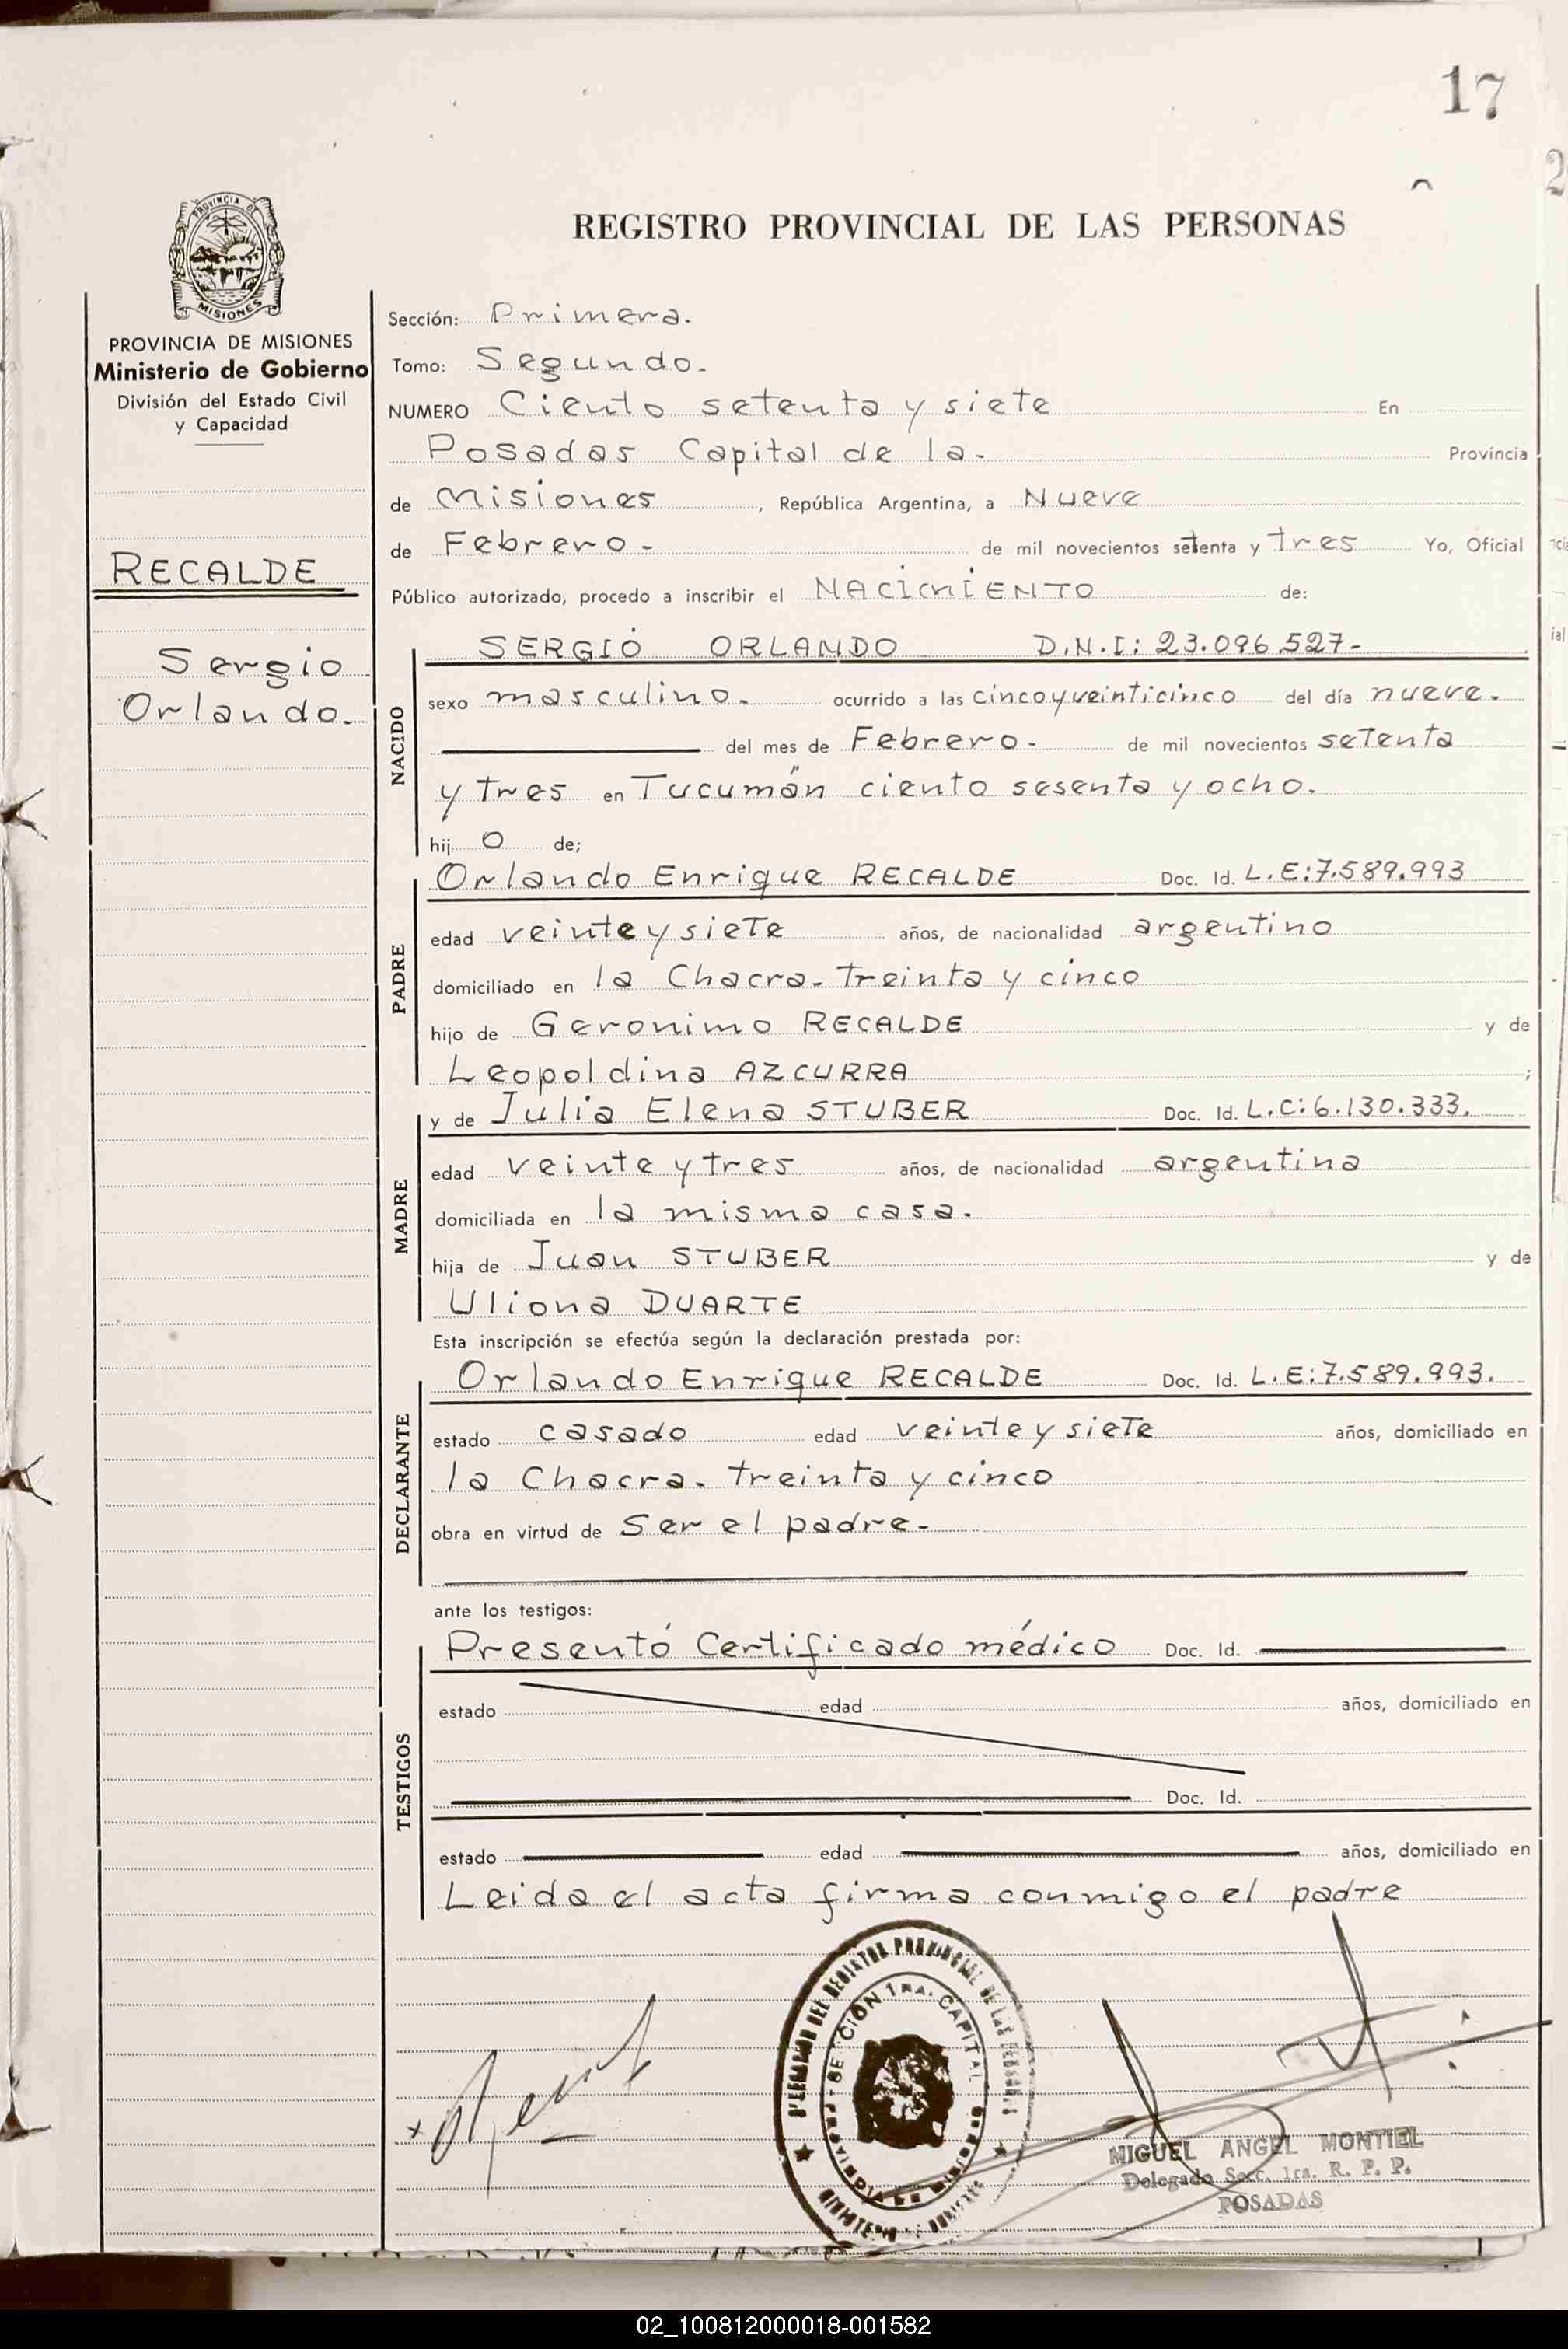 17
2
PROVINCIA DE
MISIONES
REGISTRO PROVINCIAL DE LAS PERSONAS
PROVINCIA DE MISIONES
Ministerio de Gobierno
División del Estado Civil
y Capacidad
RECALDE
Sergio
Orlando.
Sección: Primera.
Tomo: Segundo.
NUMERO Ciento setenta y siete En
Posadas Capital de la. Provincia
de Misiones, República Argentina, a Nueve
de Febrero. de mil novecientos setenta y tres Yo, Oficial
Público autorizado, procedo a inscribir el NACIMIENTO de:
NACIDO
SERGIO ORLANDO D.N.I: 23.096.527-
sexo masculino. ocurrido a las cinco y veinticinco del día nueve.
del mes de Febrero. de mil novecientos setenta
y tres en Tucumán ciento sesenta y ocho.
hij o de;
PADRE
Orlando Enrique RECALDE Doc. Id. L.E:7.589.993
edad veinte y siete años, de nacionalidad argentino
domiciliado en la Chacra. treinta y cinco
hijo de Geronimo RECALDE y de
Leopoldina AZCURRA ;
MADRE
y de Julia Elena STUBER Doc. Id. L.C:6.130.333.
edad veinte y tres años, de nacionalidad argentina
domiciliada en la misma casa.
hija de Juan STUBER y de
Uliana DUARTE
Esta inscripción se efectúa según la declaración prestada por:
DECLARANTE
Orlando Enrique RECALDE Doc. Id. L.E:7.589.993.
estado casado edad veinte y siete años, domiciliado en
la Chacra. treinta y cinco
obra en virtud de Ser el padre.
ante los testigos:
TESTIGOS
Presentó Certificado médico Doc. Id.
estado edad años, domiciliado en
Doc. Id.
estado edad años, domiciliado en
Leida el acta firma conmigo el padre
SECCION 1RA. CAPITAL
MIGUEL ANGEL MONTIEL
Delegado Secc. 1ra. R. P. P.
POSADAS
02_100812000018-001582